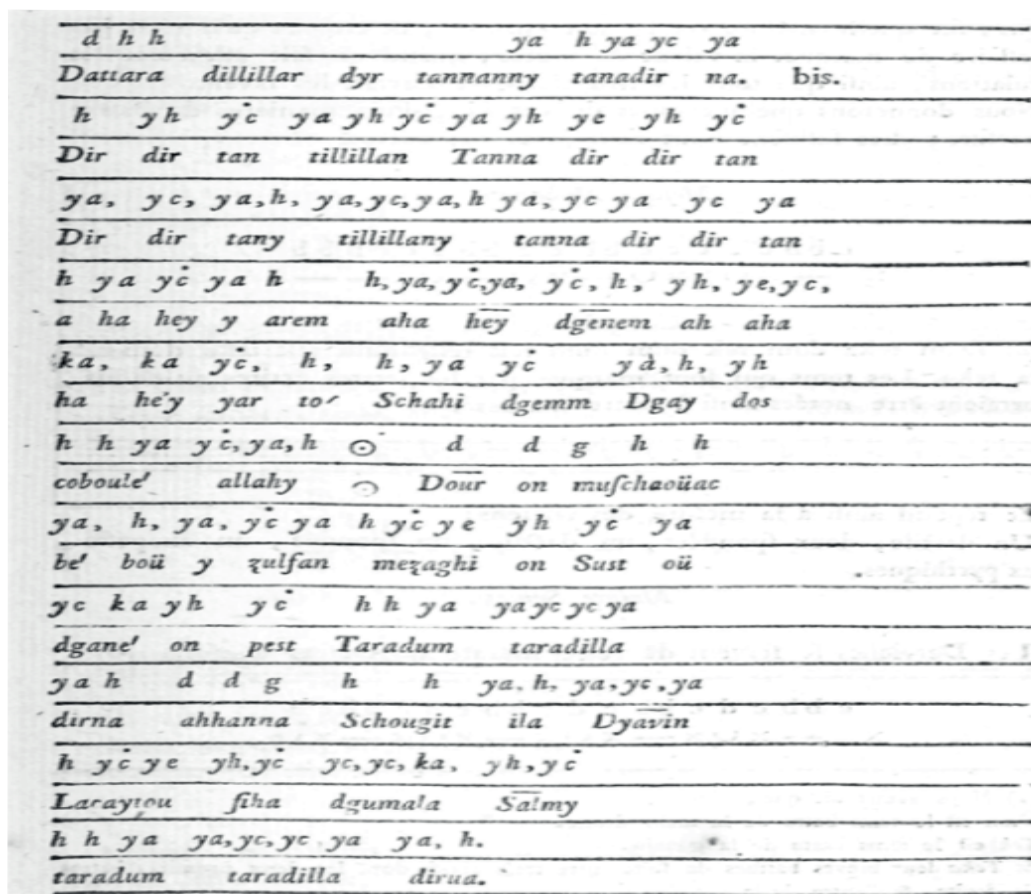 d h h ya h ya yc ya
Dattara dillillar dyr tannanny tanadir na. bis.
h yh yċ ya yh yċ ya yh ye yh yċ
Dir dir tan tillillan Tanna dir dir tan
ya, yc, ya, h, ya, yc, ya, h ya, yc ya yc ya
Dir dir tany tillillany tanna dir dir tan
h ya yċ ya h h, ya, yċ, ya, yċ, h, yh, ye, yc,
a ha hey y arem aha hey dgenem ah aha
ka, ka yċ, h, h, ya yċ yà, h, yh
ha he'y yar to' Schahi dgemm Dgay dos
h h ya yċ, ya, h ⊙ d d g h h
coboule' allahy Dour on muſchaoüac
ya, h, ya, yċ ya h yċ ye yh yċ ya
be' boü y zulfan mezaghi on Sust oü
yc ka yh yċ h h ya ya yc yc ya
dgane' on pest Taradum taradilla
ya h d d g h h ya, h, ya, yc, ya
dirna ahhanna Schougit ila Dyavin
h yċ ye yh, yċ yc, yc, ka, yh, yċ
Laraytou fiha dgumala Salmy
h h ya ya, yc, yc, ya ya, h.
taradum taradilla dirua.